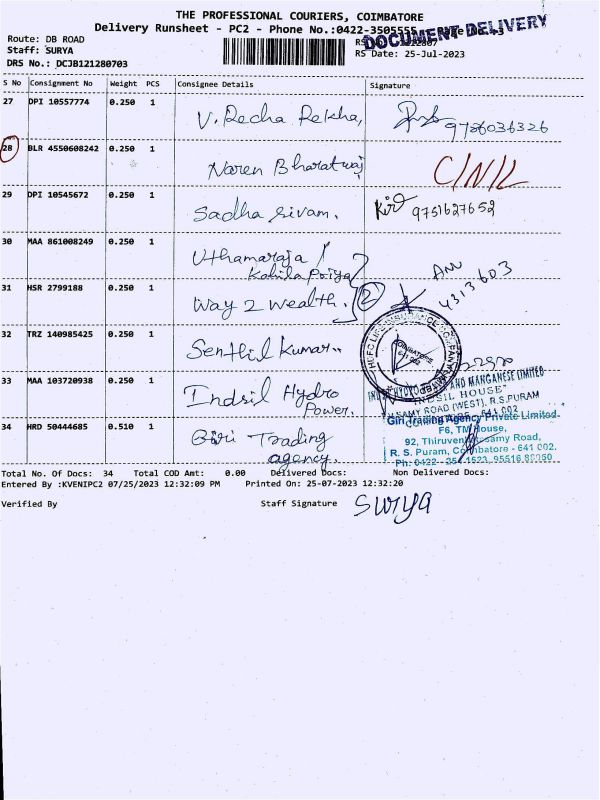 THE PROFESSIONAL COURIERS, COIMBATORE
Delivery Runsheet - PC2 - Phone No.:0422-3505555
DOCUMENT DELIVERY
Route: DB ROAD
Staff: SURYA
RS Date: 25-Jul-2023
DRS No.: DCJB121280703
S No Consignment No Weight PCS Consignee Details Signature
27 DPI 10557774 0.250 1 V. Recha Rekha, 9786036326
28 BLR 4550608242 0.250 1 Naren Bharatwaj C/N/L
29 DPI 10545672 0.250 1 Sadha Sivam. 9751627652
30 MAA 861008249 0.250 1 Uthamaraja /
Kohila Priya
31 HSR 2799188 0.250 1 Way 2 Wealth. 2 4313603
HDFC LIFE INSURANCE COMPANY LIMITED
COIMBATORE
641 002
32 TRZ 140985425 0.250 1 Senthil Kumar..
33 MAA 103720938 0.250 1 Indsil Hydro
Power.
AND MANGANESE LIMITED
"INDSIL HOUSE"
SAMY ROAD (WEST), R.S.PURAM
34 HRD 50444685 0.510 1 Giri Trading
agency.
Giri Trading Agency Private Limited
F6, TM House,
92, Thiruvenkatasamy Road,
R. S. Puram, Coimbatore - 641 002.
Total No. Of Docs: 34 Total COD Amt: 0.00 Delivered Docs: Non Delivered Docs:
Entered By :KVENIPC2 07/25/2023 12:32:09 PM Printed On: 25-07-2023 12:32:20
Verified By Staff Signature Surya